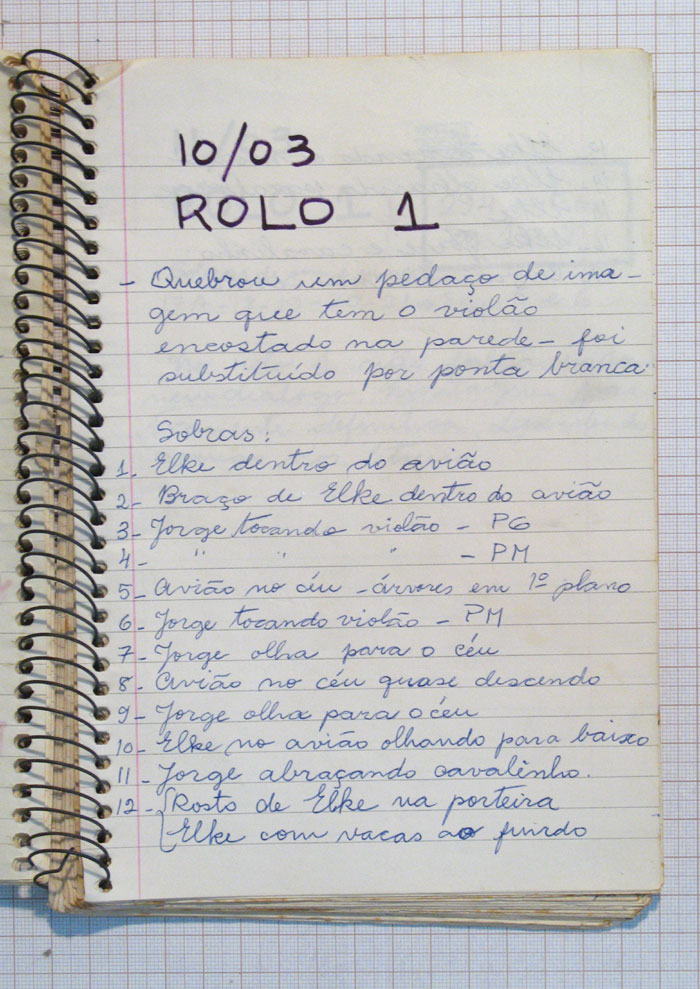 10/03
ROLO 1
- Quebrou um pedaço de ima-
gem que tem o violão
encostado na parede - foi
substituído por ponta branca.
Sobras:
1. Elke dentro do avião
2- Braço de Elke dentro do avião
3- Jorge tocando violão - PG
4- " " " - PM
5- Avião no céu - árvores em 1º plano
6- Jorge tocando violão - PM
7- Jorge olha para o céu
8- Avião no céu quase descendo
9- Jorge olha para o céu
10- Elke no avião olhando para baixo
11- Jorge abraçando cavalinho.
12- Rosto de Elke na porteira
Elke com vacas ao fundo